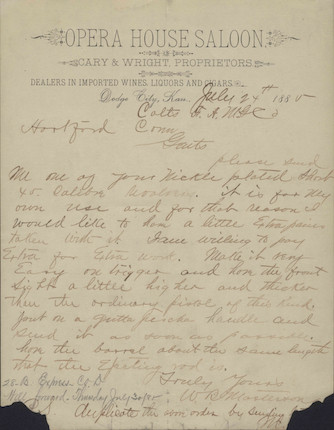 OPERA HOUSE SALOON.
CARY & WRIGHT, PROPRIETORS
DEALERS IN IMPORTED WINES, LIQUORS AND CIGARS.
Dodge City, Kan. July 24th 1885
Colts F. A. Mfg C
Hartford Conn
Gents
please send
Me one of your Nickle plated Short
45. Calibre It is for my
own use and for that reason I
would like to have a little Extra pains
taken with it I am willing to pay
Extra for Extra work. Make it very
Easy on trigger and have the front
Sight a little higher and thicker
than the ordinary pistol of this Kind.
put on a gutta percha handle and
send it as soon as possible.
have the barrel about the same length
that the Ejecting rod is.
Truly Yours
W B Masterson
Duplicate the order by Sending